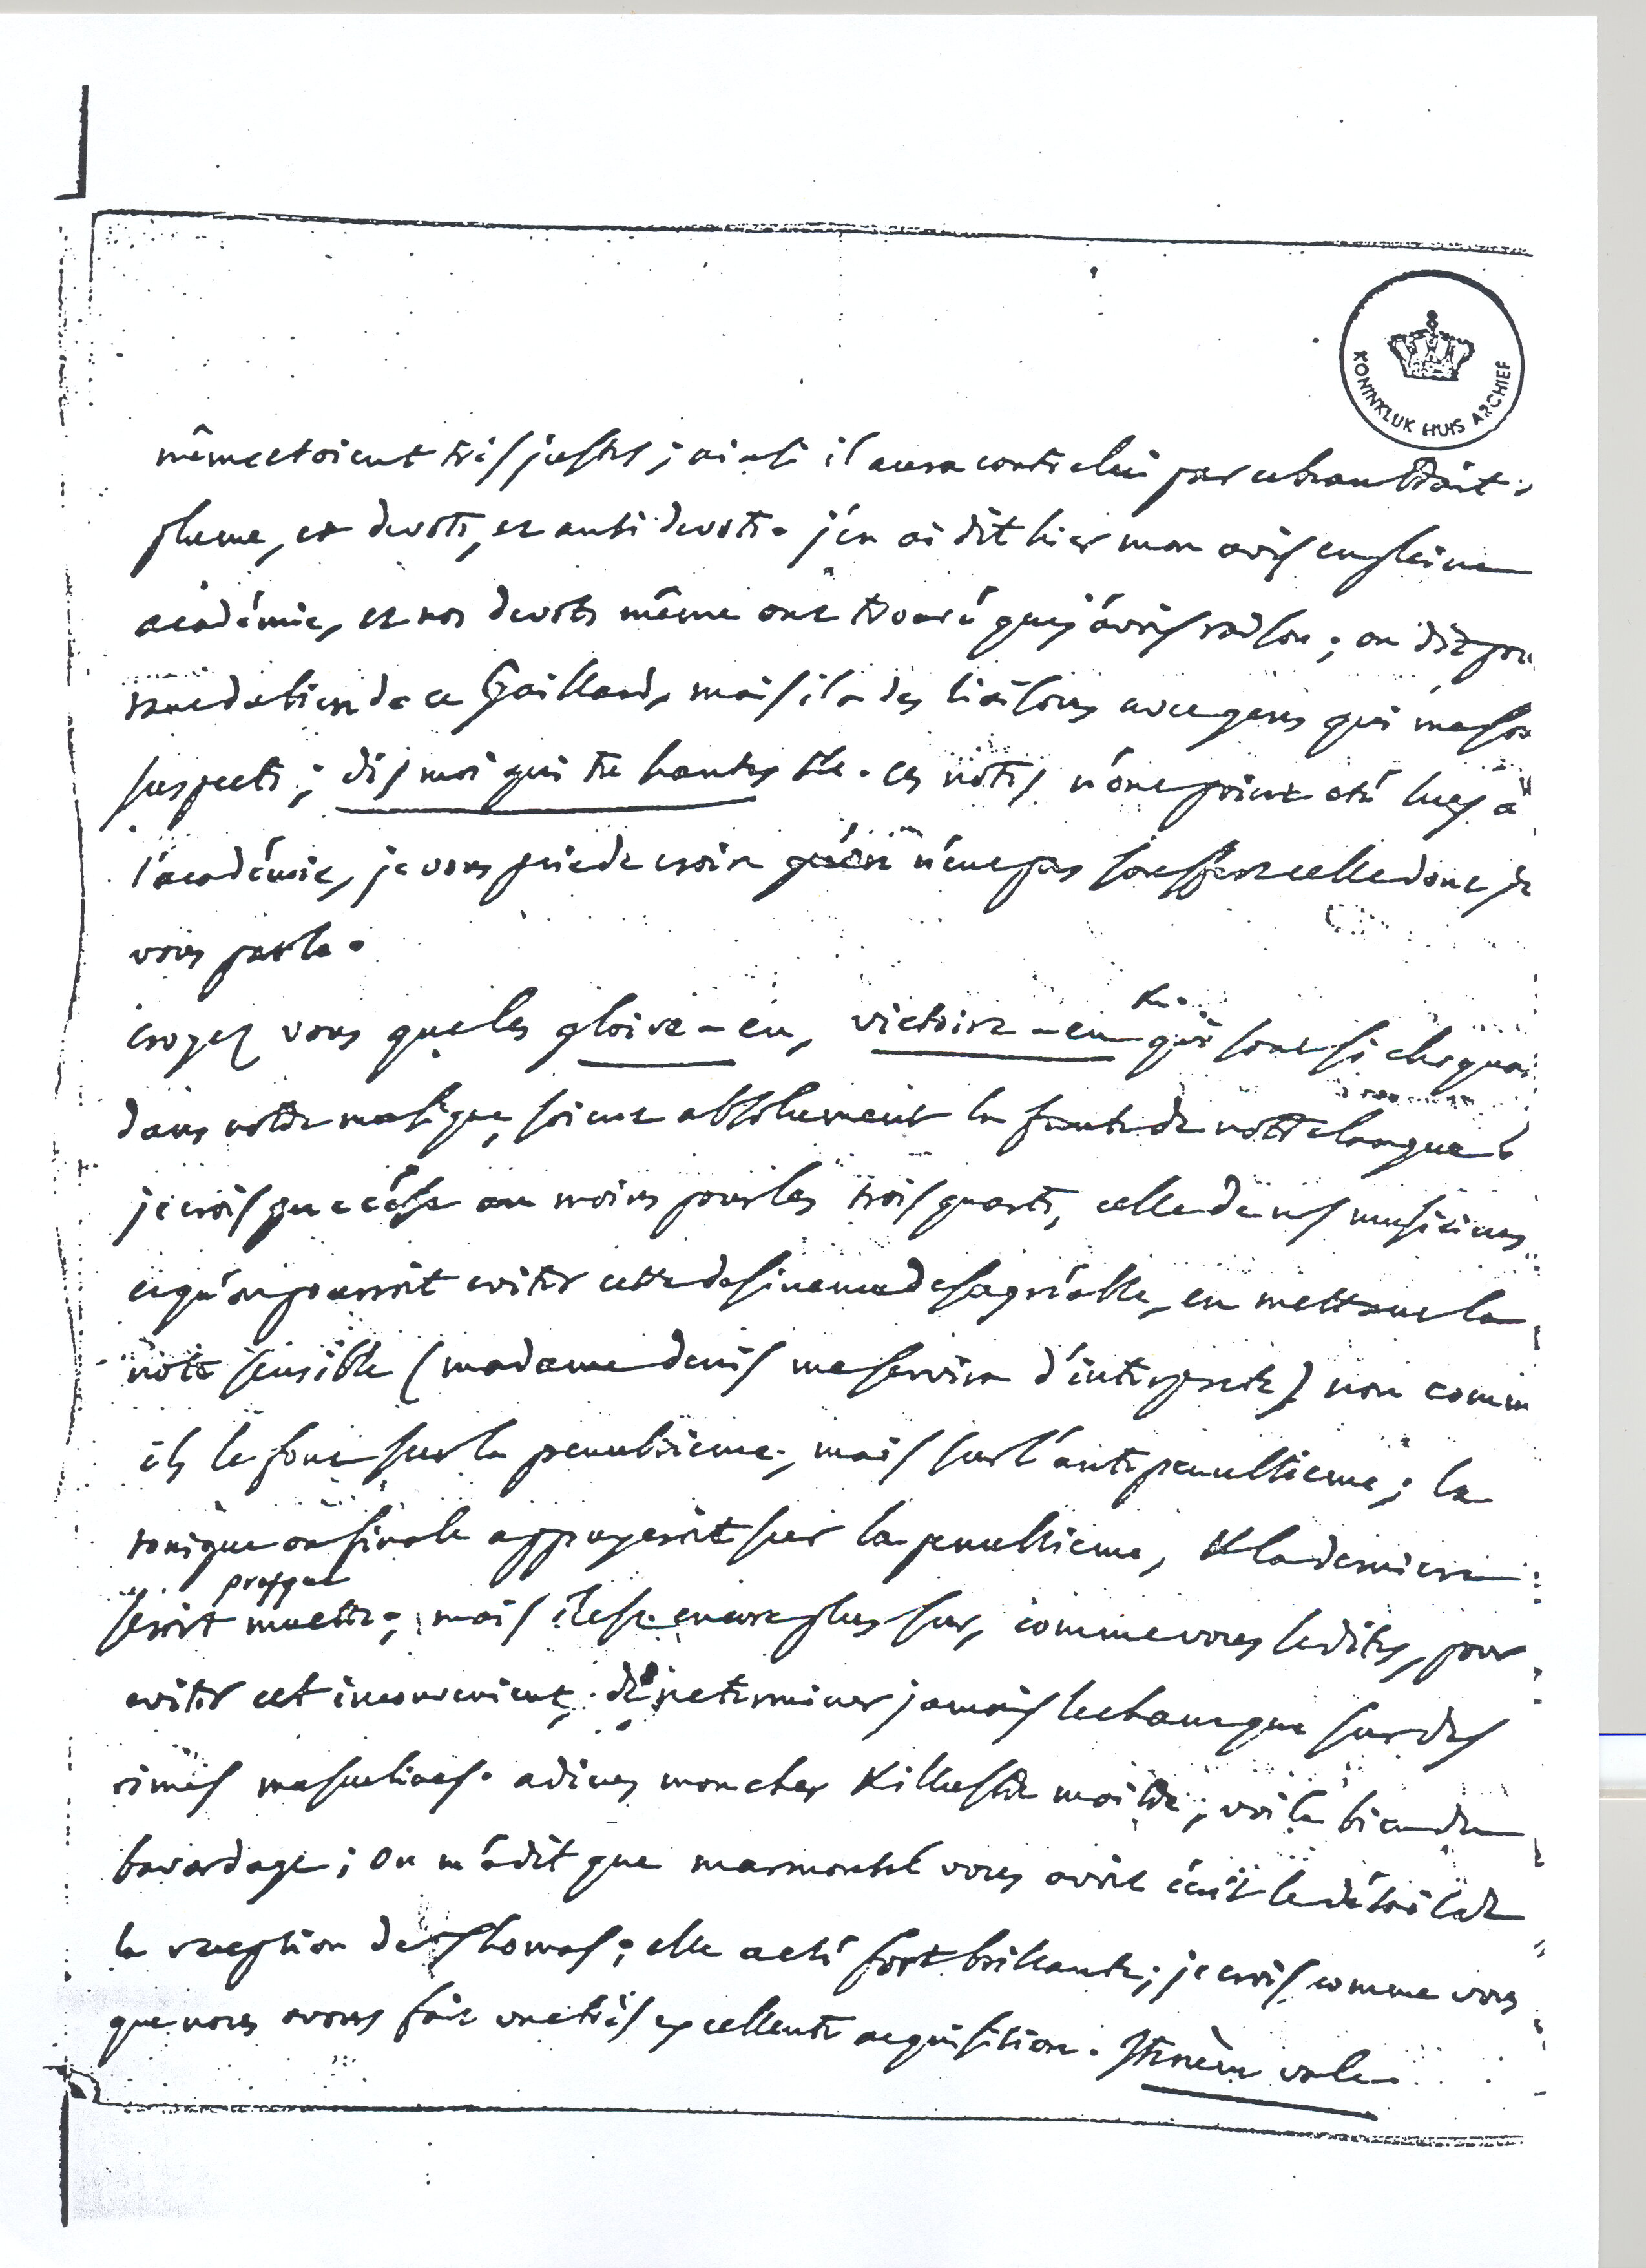 KONINKLIJK HUIS ARCHIEF
même etoient tres justes; ainsi il aura contre lui par ce beau trait
plume, et devots, et anti devots. j'en ai dit hier mon avis en pleine
académie, et nos devots même ont trouvé que j'avois raison; on dit pou
tant du bien de ce Gaillard, mais il a des liaisons avec gens qui me so
suspects; dis moi qui tu hantes &c. ces notes n'ont point eté lues à
l'académie, je vous prie de croire qu'on n'eut pas souffert celle dont je
vous parle.
croyez vous que les gloire-eu, victoire-eu &c. qui sont si choquan
dans notre musique, soient absolument la faute de notre langue?
je crois que c'est au moins pour les trois quarts, celle de nos musiciens
et qu'on pourroit eviter cette desinence desagréable, en mettant la
note sensible (madame denis me servira d'interprete) non comm
ils le font sur la penultieme, mais sur l'antepenultieme; la
tonique ou finale appuyeroit sur la penultieme, & la derniere
seroit presque muette; mais il est encore plus sur, comme vous le dites, pour
eviter cet inconvenient, de ne terminer jamais le chant que sur des
rimes masculines. adieu mon cher & illustre maitre; voila bien du
bavardage; on m'a dit que marmontel vous avoit écrit le détail de
la reception de thomas; elle a eté fort brillante; je crois comme vous
que nous avons fait une très excellente acquisition. Iterum vale.